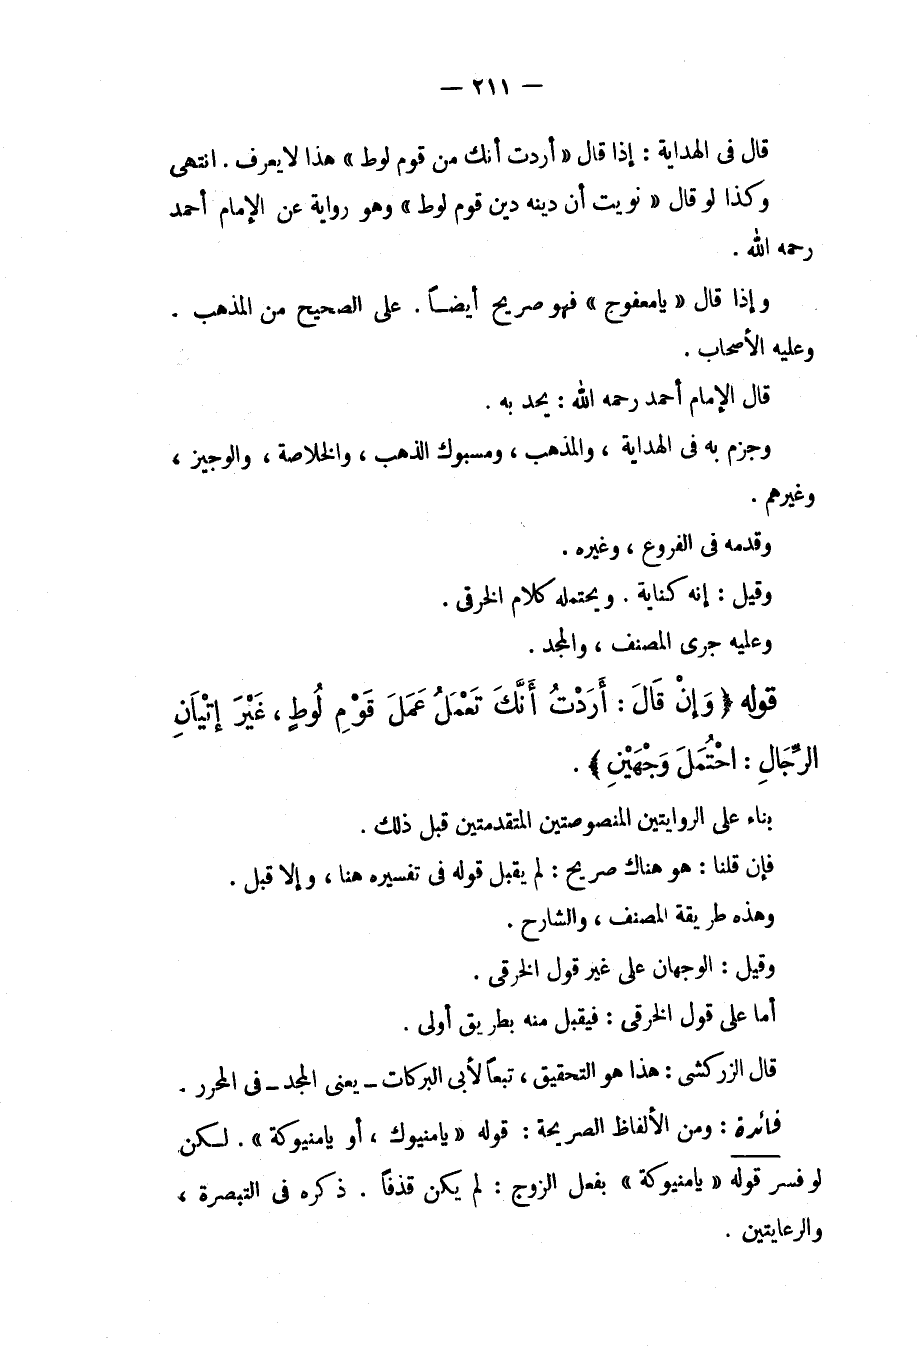 — ٢١١ —
قال فى الهداية : إذا قال « أردت أنك من قوم لوط » هذا لا يعرف . انتهى
وكذا لو قال « نويت أن دينه دين قوم لوط » وهو رواية عن الإمام أحمد
رحمه الله .
وإذا قال « يامعفوج » فهو صريح أيضاً . على الصحيح من المذهب .
وعليه الأصحاب .
قال الإمام أحمد رحمه الله : يحد به .
وجزم به فى الهداية ، والمذهب ، ومسبوك الذهب ، والخلاصة ، والوجيز ،
وغيرهم .
وقدمه فى الفروع ، وغيره .
وقيل : إنه كناية . ويحتمله كلام الخرقى .
وعليه جرى المصنف ، والمجد .
قوله ﴿ وَإِنْ قَالَ : أَرَدْتُ أَنَّكَ تَعْمَلُ عَمَلَ قَوْمِ لُوطٍ ، غَيْرَ إِتْيَانِ
الرِّجَالِ : احْتُمَلَ وَجْهَيْنِ ﴾ .
بناء على الروايتين المنصوصتين المتقدمتين قبل ذلك .
فإن قلنا : هو هناك صريح : لم يقبل قوله فى تفسيره هنا ، وإلا قبل .
وهذه طريقة المصنف ، والشارح .
وقيل : الوجهان على غير قول الخرقى .
أما على قول الخرقى : فيقبل منه بطريق أولى .
قال الزركشى : هذا هو التحقيق ، تبعاً لأبى البركات ــ يعنى المجد ــ فى المحرر .
فائدة : ومن الألفاظ الصريحة : قوله « يامنيوك ، أو يامنيوكة » . لكن
لو فسر قوله « يامنيوكة » بفعل الزوج : لم يكن قذفاً . ذكره فى التبصرة ،
والرعايتين .